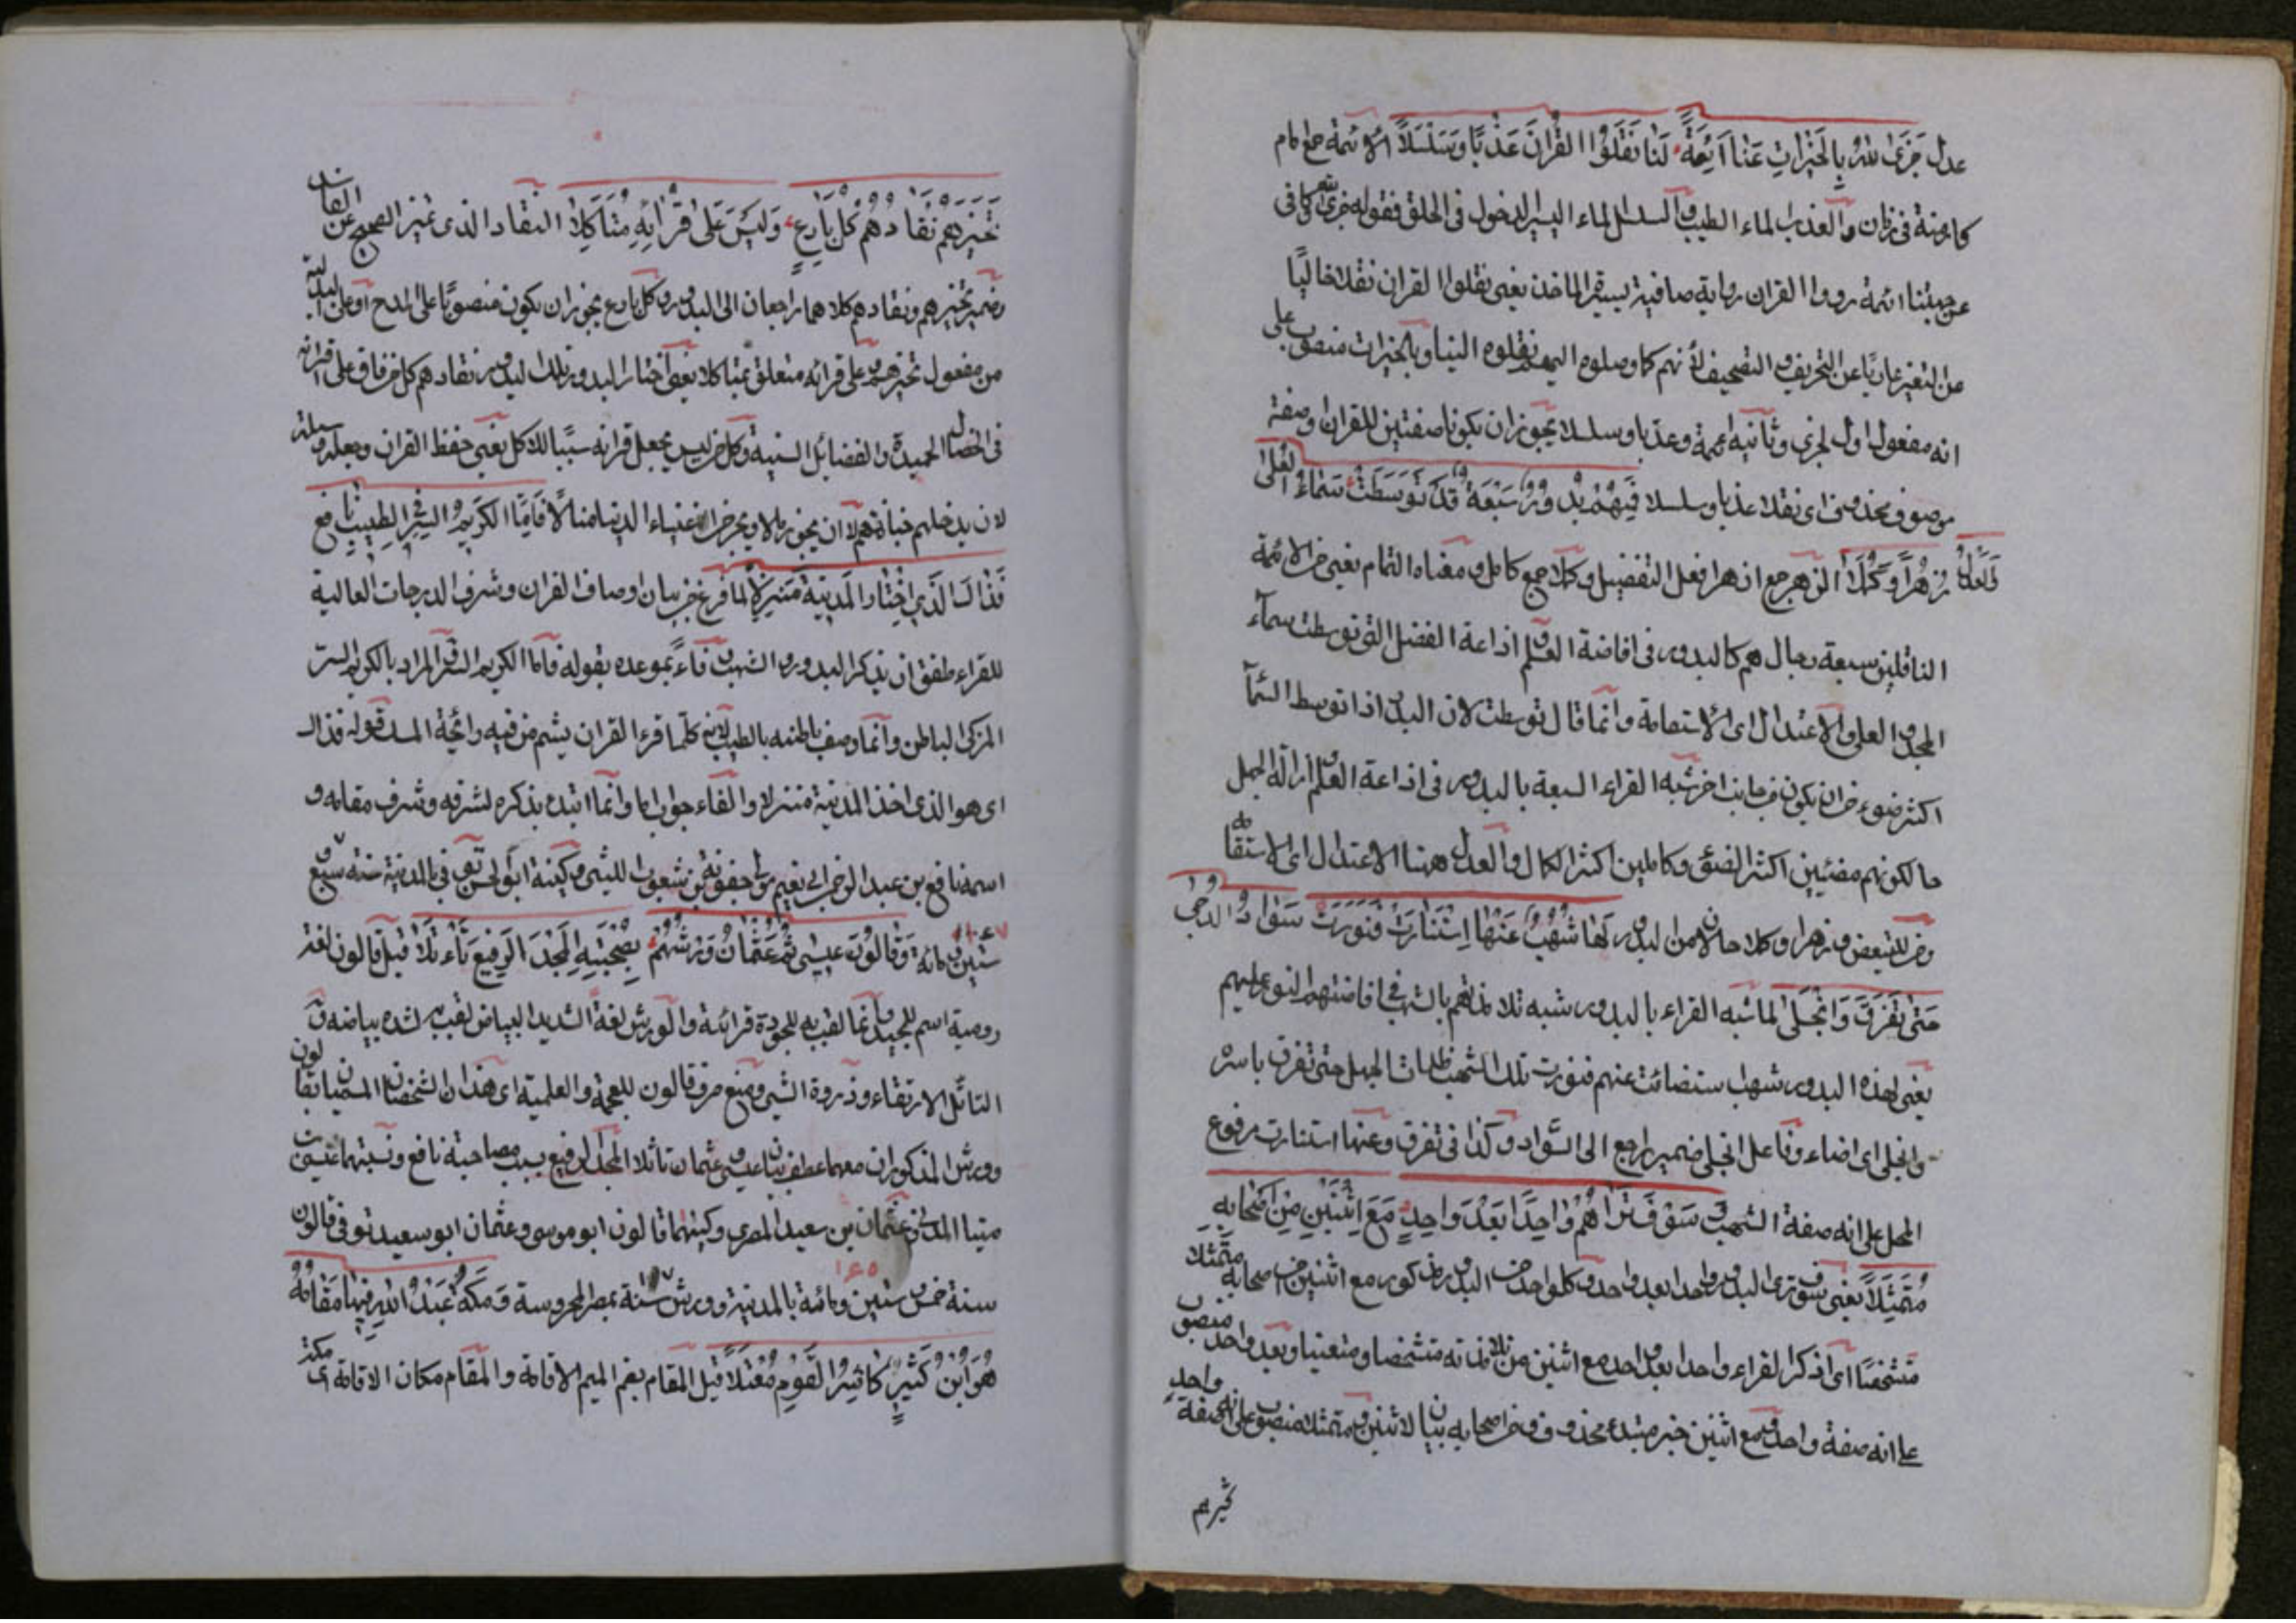 عدل جَزَى اللهُ بِالخَيْرَاتِ عَنَّا أَئِمَّةً لَنَا نَقَلُوا القُرْآنَ عَذْبًا وَسَلْسَلًا الائمة جمع امام
كازمنة فى زمان والعذب الماء الطيب والسلسل الماء اليسير الدخول فى الحلق فقوله جزى الله كافى
عن جيئنا ائمة رووا القران رواية صافية يعنى نقلوا القران نقلا خاليًا
من التغير عاريًا عن التحريف والتصحيف لأنهم كما وصلوه اليهم نقلوه الينا وبالخيرات منصوب على
انه مفعول اول لجزى وثانيه ائمة وعذبا وسلسلا يجوز ان يكونا صفتين للقران وصفة
موصوف محذوف اى نقلا عذبا وسلسلا فَمِنْهُمْ بُدُورٌ سَبْعَةٌ قَدْ تَوَسَّطَتْ سَمَاءَ العُلَى
وَالعَدْلِ زُهْرًا وَكُمَّلَا الزهر جمع ازهر افعل التفضيل وكملا جمع كامل ومعناه التمام يعنى من الائمة
الناقلين سبعة رجال هم كالبدور فى افاضة العلم و اذاعة الفضل التى توسطت سمآء
المجد والعلى والاعتدال اى الاستقامة وانما قال توسطت لان البدر اذا توسط السمآ
اكثر ضوء من ان يكون فى جانب اخر شبه القراء السبعة بالبدور فى اذاعة العلم و ازالة الجهل
حالكونهم مضئيين اكثر الضوء وكاملين اكثر الكمال والعدل ههنا الاعتدال اى الاستقامة
ومن للتبعض وزهرا وكملا حالان من البدور لَهَا شُهُبٌ عَنْهَا اِسْتَنَارَتْ فَنَوَّرَتْ سَوَادَ الدُّجَى
حَتَّى تَفَرَّقَ وَانْجَلَى لما شبه القراء بالبدور شبه تلامذتهم بالشهب فى افاضتهم النور عليهم
يعنى لهذه البدور شهاب ستضائت عنهم فنورت تلك الشهب ظلمات الجهل حتى تفرق باسره
وانجلى اى اضاء وفاعل انجلى ضمير راجع الى السَّواد وكذا فى تفرق وعنها استنارت مرفوع
المحل على انه صفة الشهب وَسَوْفَ تَرَاهُمْ وَاحِدًا بَعْدَ وَاحِدٍ مَعَ اثْنَيْنِ مِنْ اَصْحَابِهِ
مُتَمَثِّلًا يعنى سوف ترى البدور واحدا بعد واحد وكل واحد من البدور مذكور مع اثنين من اصحابه متمثلا
متشخصًا اى اذكر القراء واحدا بعد واحد مع اثنين من تلامذته متشخصا ومتعنيا وبعد واحد منصوب
على انه صفة واحد ومع اثنين خبر مبتدء محذوف ومن اصحابه بيان لاثنين ومتمثلا منصوب على انه صفة واحد
تخيرهم
تَخَيَّرَهُمْ نُقَّادُهُمْ كُلَّ بَارِعٍ وَلَيْسَ عَلَى قُرْآنِهِ مُتَأَكِّلَا النقاد الذى غيز الصحيح عن الفاسد
وضمير تخيرهم ونقادهم كلاهما راجعان الى البدور وكل بارع يجوز ان يكون منصوبًا على المدح او على البدلية
من مفعول تخيرهم وعلى قرانه متعلق بمتاكلا يعنى اختار البدور وتلك البدور نقادهم كل من فاق على اقرانه
فى الخصال الحميدة والفضائل السنية وكل من ليس يجعل قرانه سببًا للاكل يعنى حفظ القران وجعله وسيلة
لان اغنياء الدنيا منالًا فَاَمَّا الكَرِيمُ السِّرِّ فِى الطِّيبِ نَافِعٌ
فَذَاكَ الَّذِي اخْتَارَ المَدِينَةَ مَنْزِلًا لما فرغ من بيان اوصاف القران وشرف الدرجات العالية
للقراء طفق ان يذكر البدور والشهب وفاءً بموعده بقوله فاما الكريم السر المراد بالكريم السر
المزكى الباطن وانما وصف باطنه بالطيب لانه كلما قرء القران يشم من فيه رائحة المسك قوله فذاك
اى هو الذى اخذ المدينة منزلا والفاء جواب اما وانما ابتدء بذكره لشرفه وشرف مقامه و
اسمه نافع بن عبد الرحمن ابى نعيم مولى جعونة بن شعوب الليثى وكينته ابو الحسن توفى فى المدينة سنة تسع و
ستين ومائة وَقَالُونُ عِيسَى ثُمَّ عُثْمَانُ وَرْشُهُمْ بِصُحْبَتِهِ المَجْدَ الرَّفِيعَ تَأَثَّلَا قيل قالون لغة
رومية اسم للجيد وانما لقب به لجودة قرائة والورش لغة الشديد البياض لقب به لشدة بياضه و
التأثل الارتقاء وذروة الشى ومنع صرف قالون للعجمة والعلمية اى هذان الشخصان المسميان بقالون
وورش المذكوران معهما عطف بيان عيسى وعثمان تاثلا المجد الرفيع بسبب مصاحبة نافع ونسبتهما عيسى بن
مينا المدنى وعثمان بن سعيد المصرى وكينتهما قالون ابو موسى وعثمان ابو سعيد توفى قالون
سنة خمس و ستين ومائة بالمدينة وورش سنة بمصر المحروسة وَمَكَّةُ عَبْدُ اللهِ فِيهَا مُقَامُهُ
هُوَ ابْنُ كَثِيرٍ كَاثِرُ القَوْمِ مُعْتَلَا قيل المقام بضم الميم الاقامة والمقام مكان الاقامة اى مكة